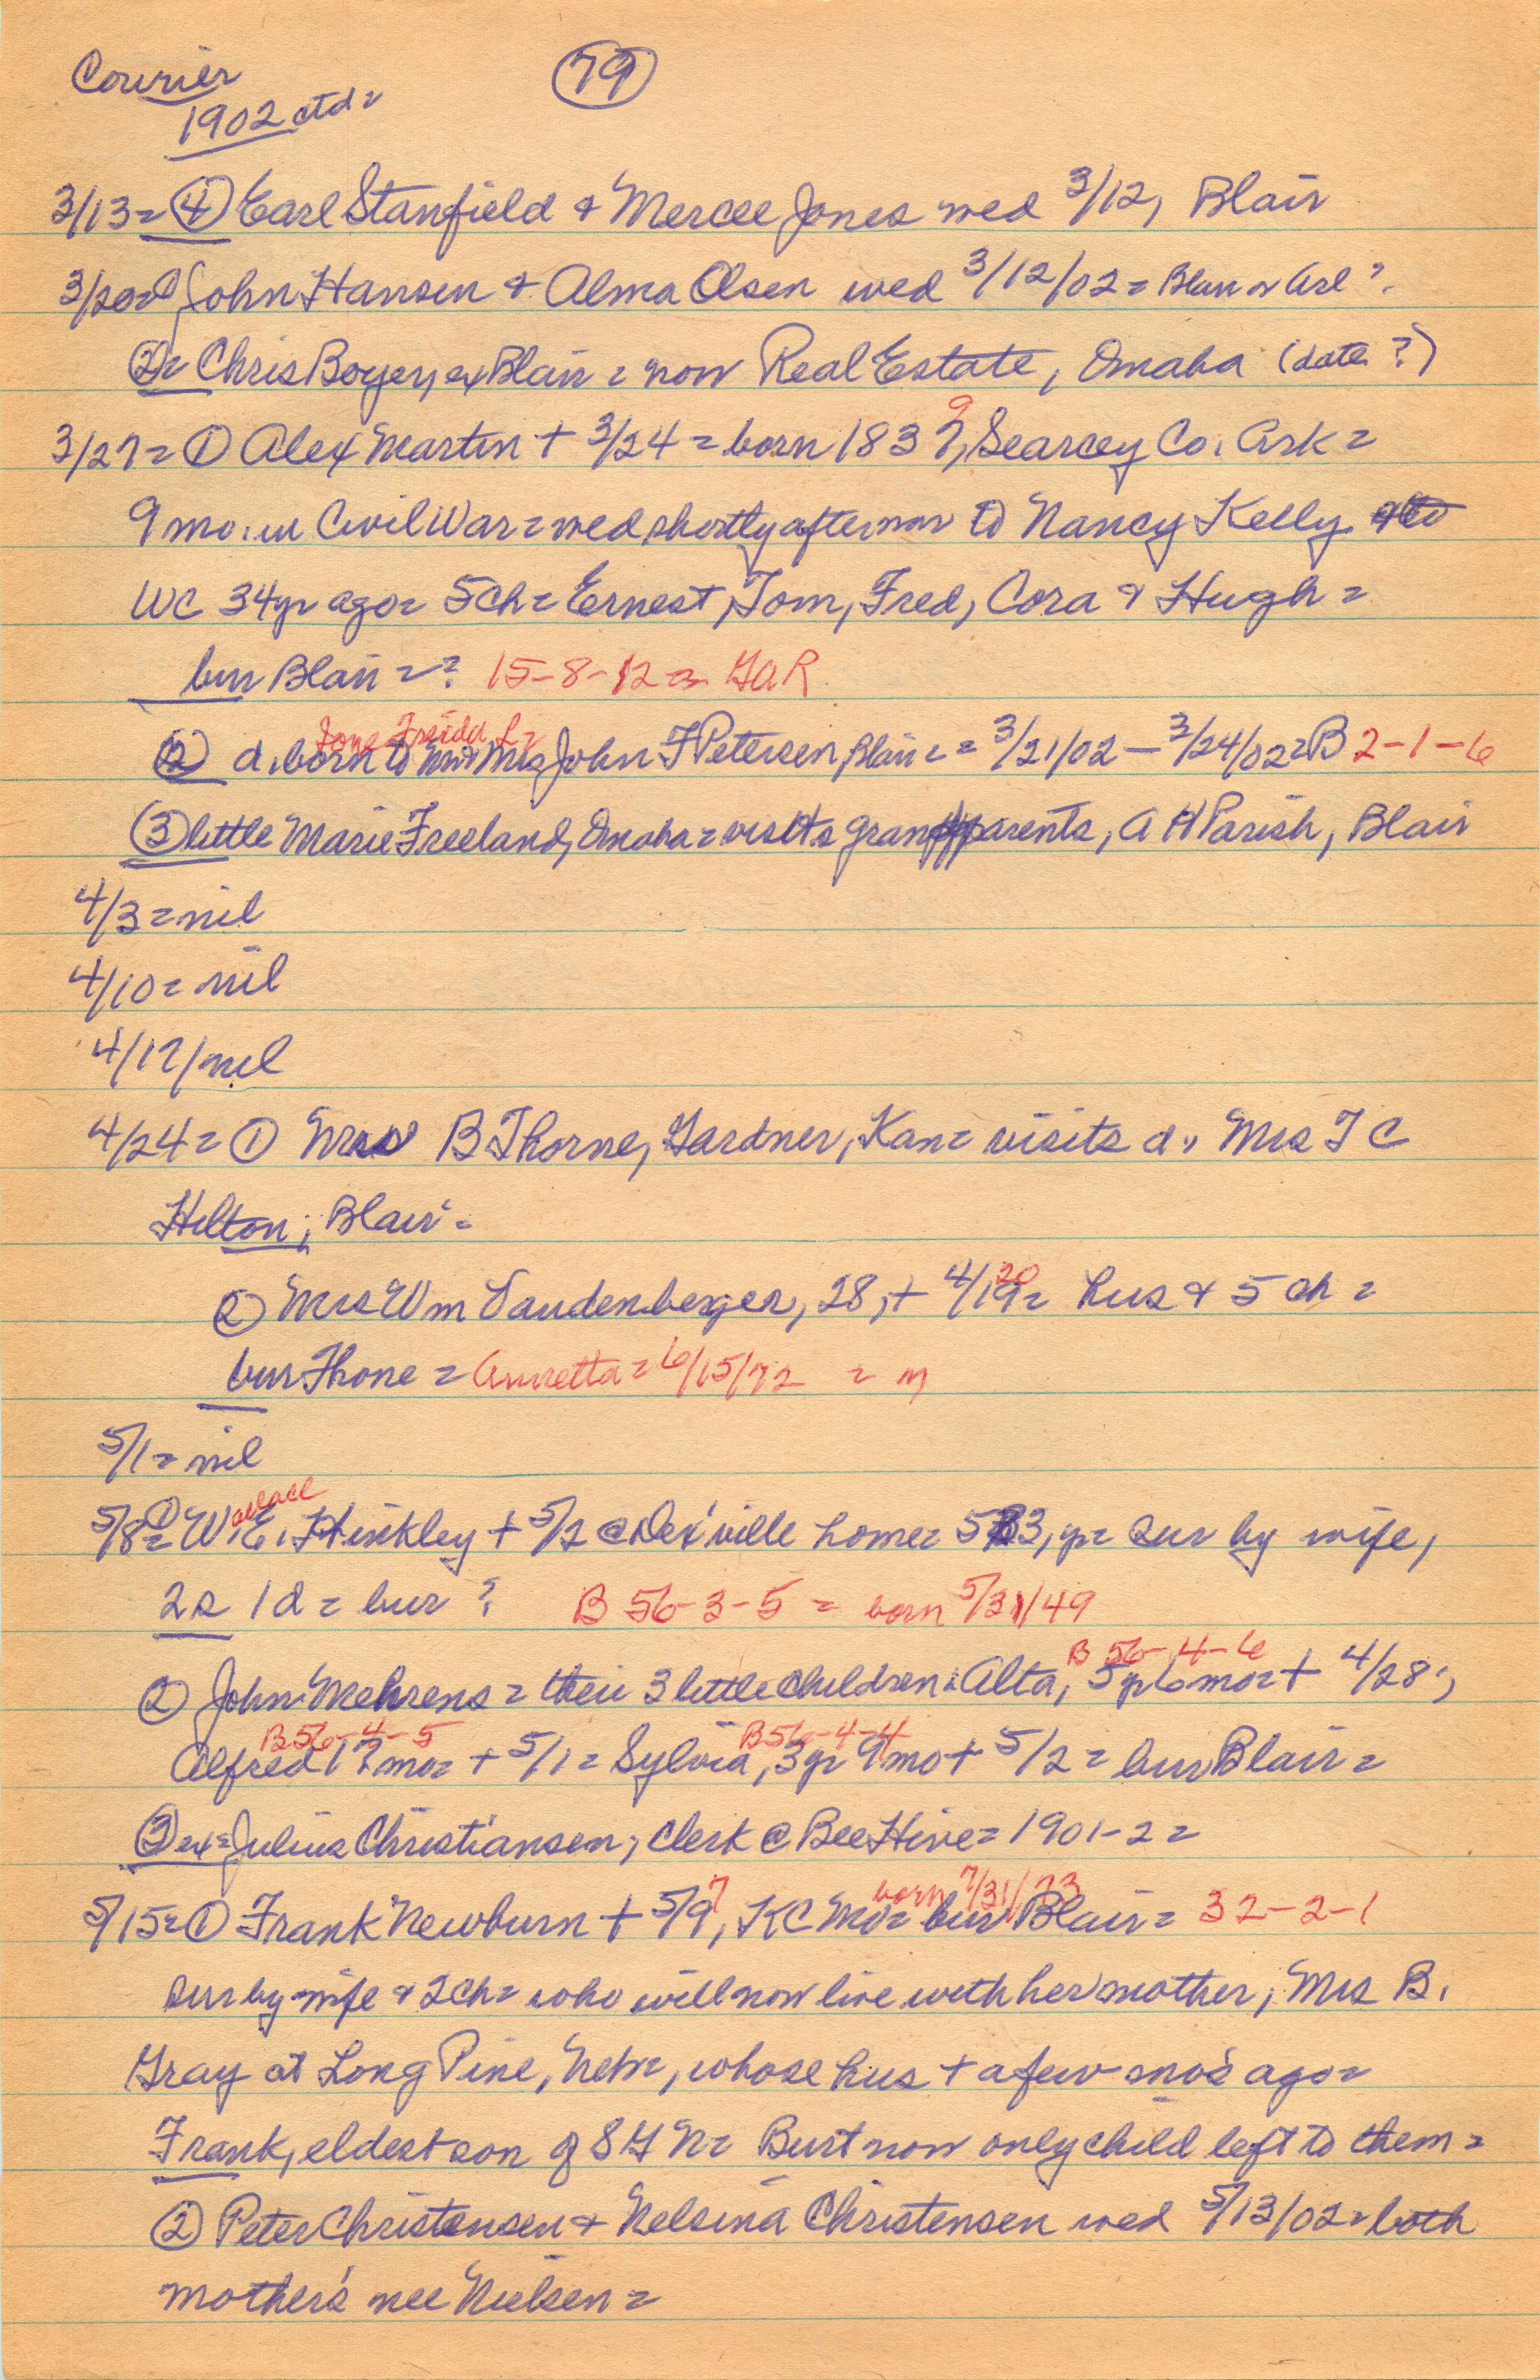 Courier
79
1902 ctd=
3/13= ④ Earl Stanfield & Mercee Jones wed 3/12, Blair
3/20= ① John Hansen & Alma Olsen wed 3/12/02= Blair or Arl?
②= Chris Boyer, ex Blair = now Real Estate, Omaha (date?)
9
3/27= ① Alex Martin + 3/24= born 183?, Searcey Co. Ark=
9 mo. in Civil War= wed shortly after war to Nancy Kelly
WC 34yr ago= 5ch= Ernest, Tom, Fred, Cora & Hugh=
bur Blair=? 15-8-12= GAR
Freida
② d. born to Mr & Mrs John F Petersen, Blair== 3/21/02—3/24/02=B 2-1-6
③ little Marie Freeland, Omaha= visits grandparents, A H Parish, Blair
4/3=nil
4/10=nil
4/17/nil
4/24= ① Mrs B Thorne, Gardner, Kan= visits d., Mrs T C
Hilton, Blair=
20
② Mrs Wm Vandenberger, 28, + 4/19= hus & 5 ch=
bur Fhone= Annetta= 6/15/72 = m
5/1= nil
Wallace
5/8= ① W. E. Hinkley + 5/2 @ Dex'ville home= 53, yr= sur by wife,
2s 1d= bur? B 56-3-5= born 5/31/49
B 56-4-6
② John Mehrens= their 3 little children: Alta, 5yr 6mo=+ 4/28;
B 56-4-5 B 56-4-4
Alfred 1? mo= + 5/1= Sylvia, 3yr 9mo + 5/2= bur Blair=
③ ex= Julius Christiansen, clerk @ Bee Hive= 1901-2=
7 born 7/31/73
5/15= ① Frank Newburn + 5/9, KC Mo= bur Blair= 32-2-1
sur by wife & 2ch= who will now live with her mother, Mrs B.
Gray at Long Pine, Neb=, whose hus + a few mo's ago=
Frank, eldest son of S G N= Burt now only child left to them=
② Peter Christensen & Nelsina Christensen wed 5/13/02= both
mother's nee Nielsen=